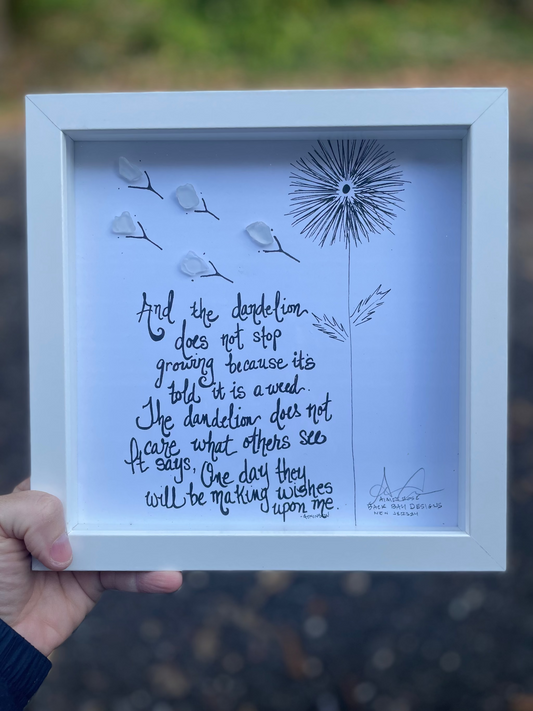 And the dandelion
does not stop
growing because it's
told it is a weed.
The dandelion does not
care what others see
It says, One day they
will be making wishes
upon me.
BACK BAY DESIGNS
NEW JERSEY